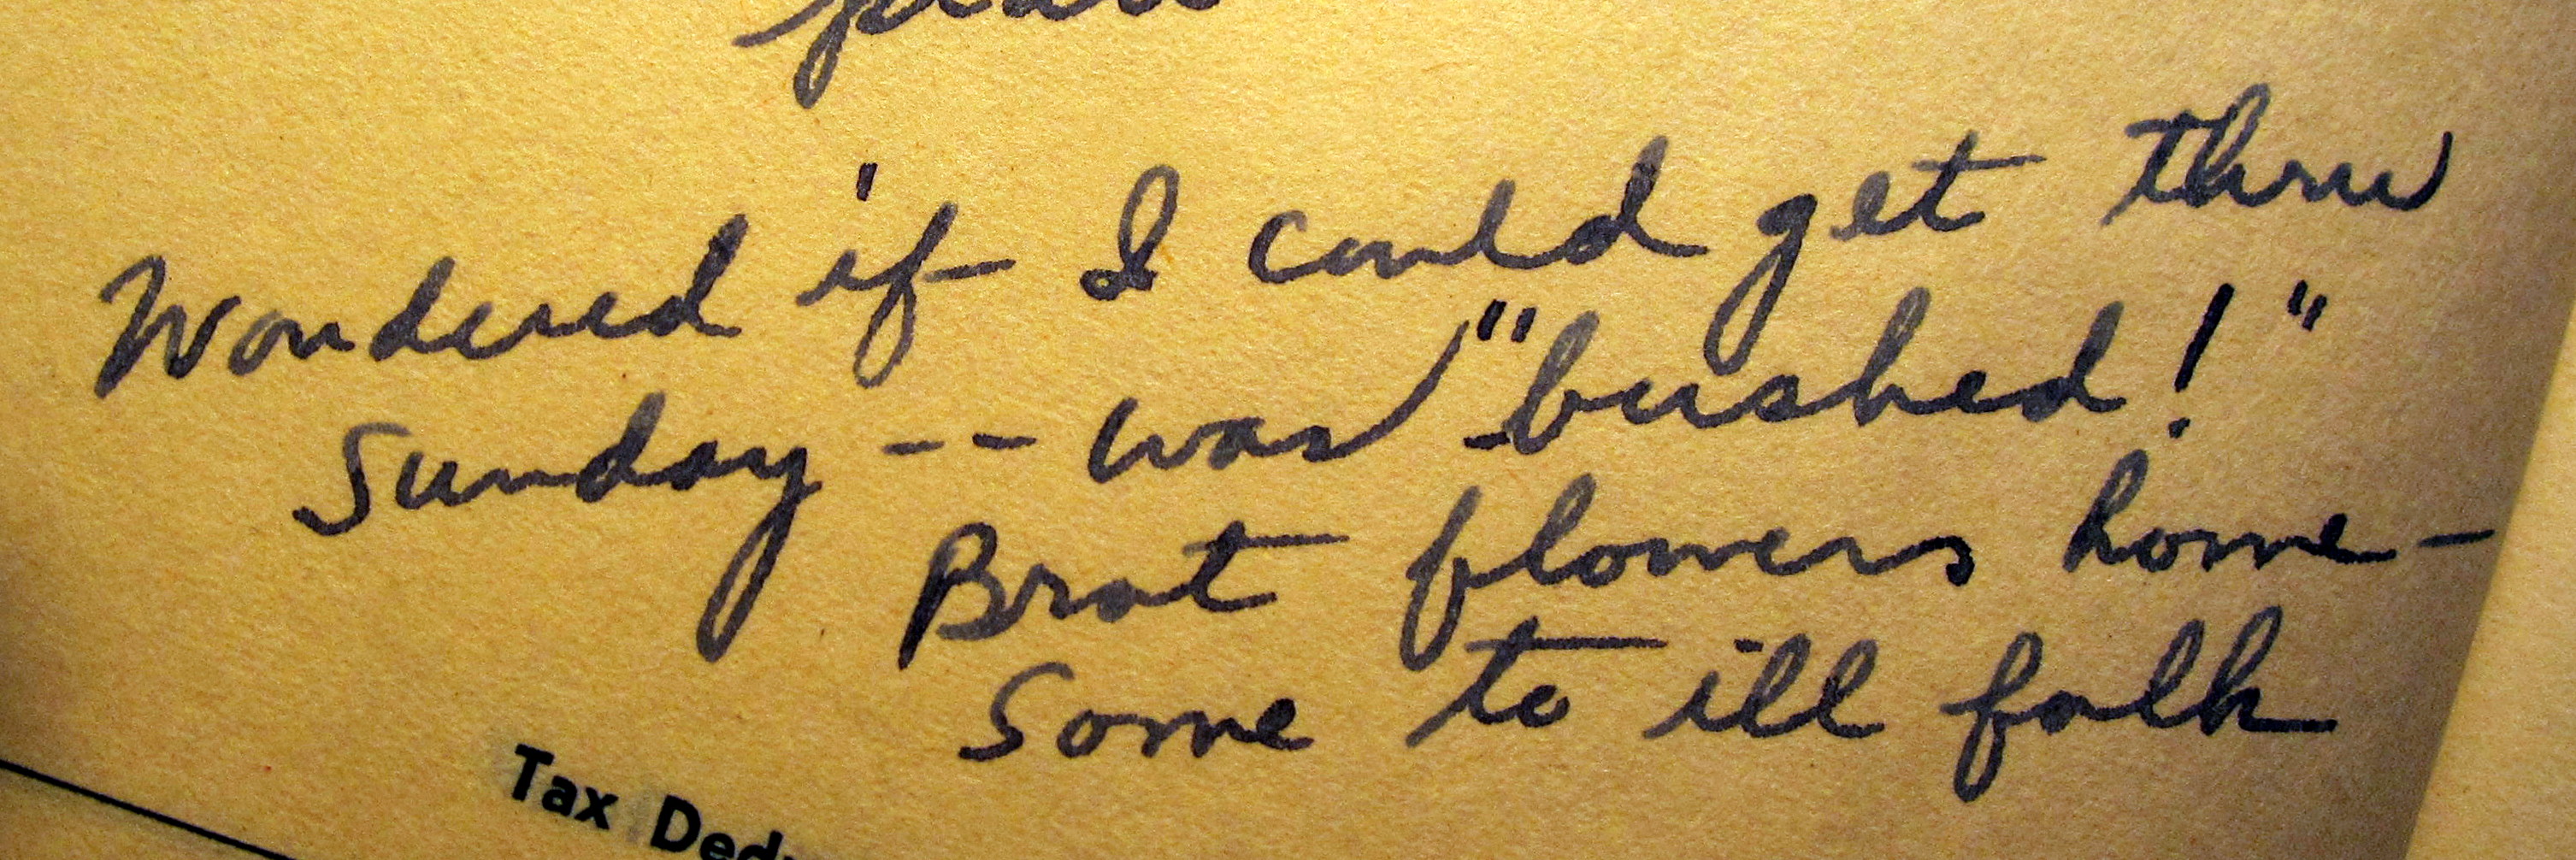 Wondered if I could get thru
Sunday -- was "bushed!"
Brot flowers home-
Some to ill folk
Tax